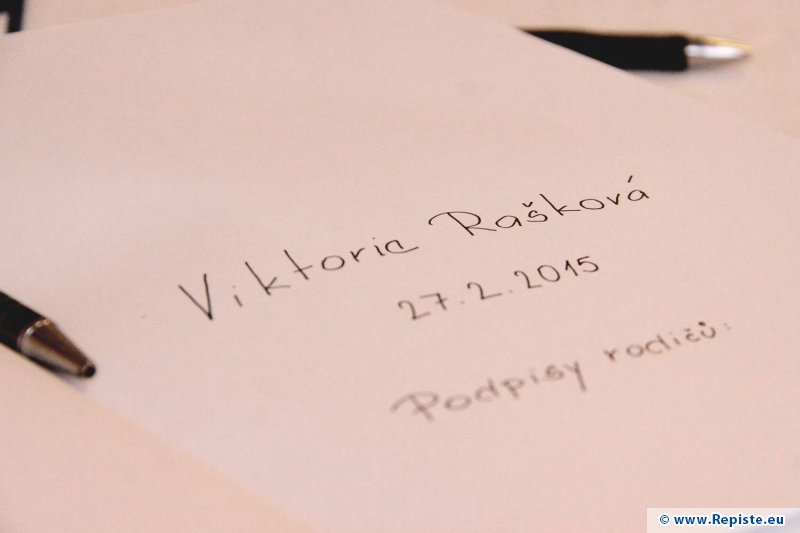 Viktoria Rašková
27.2.2015
Podpisy rodičů:
© www.Repiste.eu